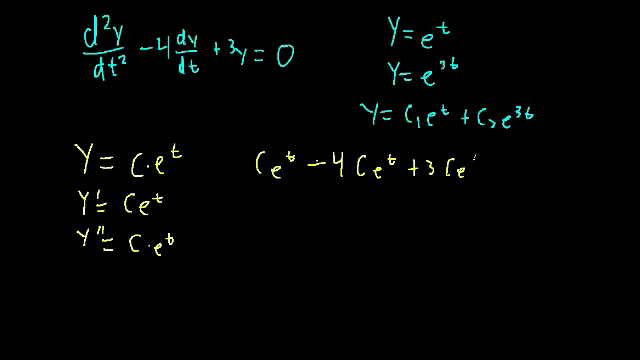 d²y/dt² - 4 dy/dt + 3y = 0
y = e^t
y = e^3t
y = C₁e^t + C₂e^3t
y = C·e^t
y' = Ce^t
y'' = C·e^t
Ce^t - 4Ce^t + 3Ce